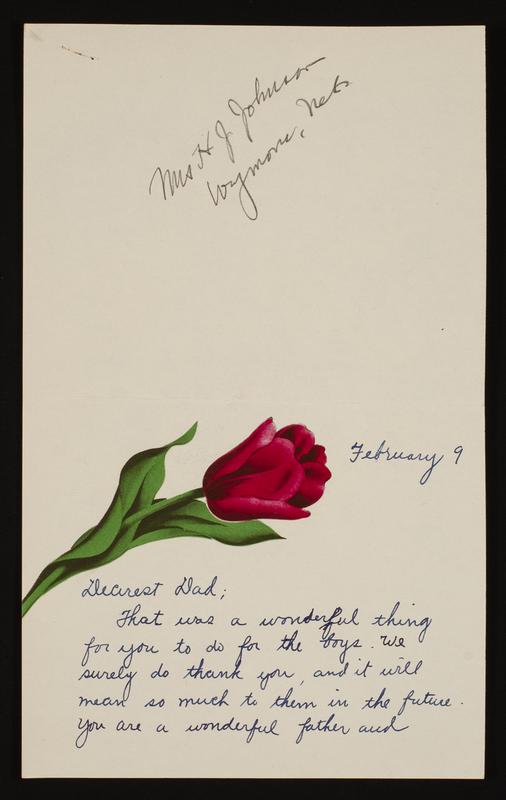 Mrs H J Johnson
Wymore, Nebr
February 9
Dearest Dad;
That was a wonderful thing
for you to do for the boys. We
surely do thank you, and it will
mean so much to them in the future.
You are a wonderful father and